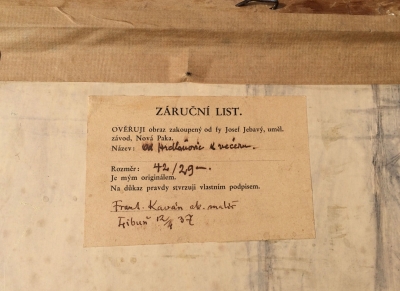 ZÁRUČNÍ LIST.
OVĚŘUJI obraz zakoupený od fy Josef Jebavý, uměl.
závod, Nová Paka.
Název: Od Hrdoňovic k večeru.
Rozměr: 42/29—.
Je mým originálem.
Na důkaz pravdy stvrzuji vlastním podpisem.
Frant. Kaván ak. malíř
Libuň 37